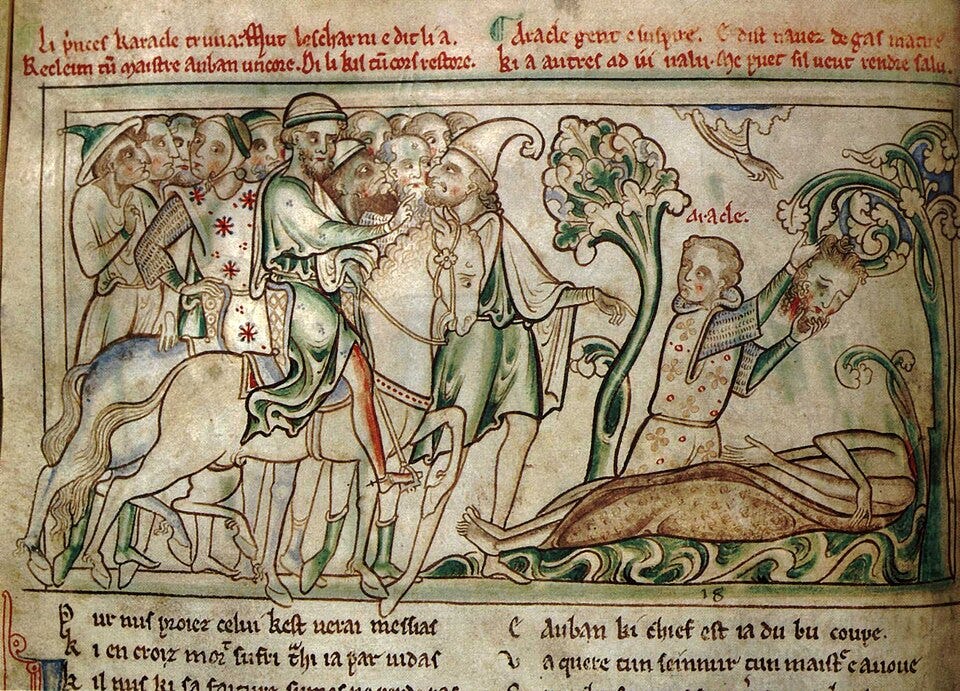 Li p'nces karacle truva. Mut lescharni e dit li a.
Recleim tũ maistre Auban uncore. Di li kil tũ cors restore.
Aracle gent e suspire. E dist navez de gas matire
ki a autres ad vi valu. Me puet sil veut rendre salu.
aracle.
18
Pur nus proiez celui kest verai messias
ki en croiz mort sufri
par iudas
kil nus ki sa faiture sumes ne perde pas
E Auban ki chief est ia du bu coupe.
va quere tun seinnur tun maistre avoue